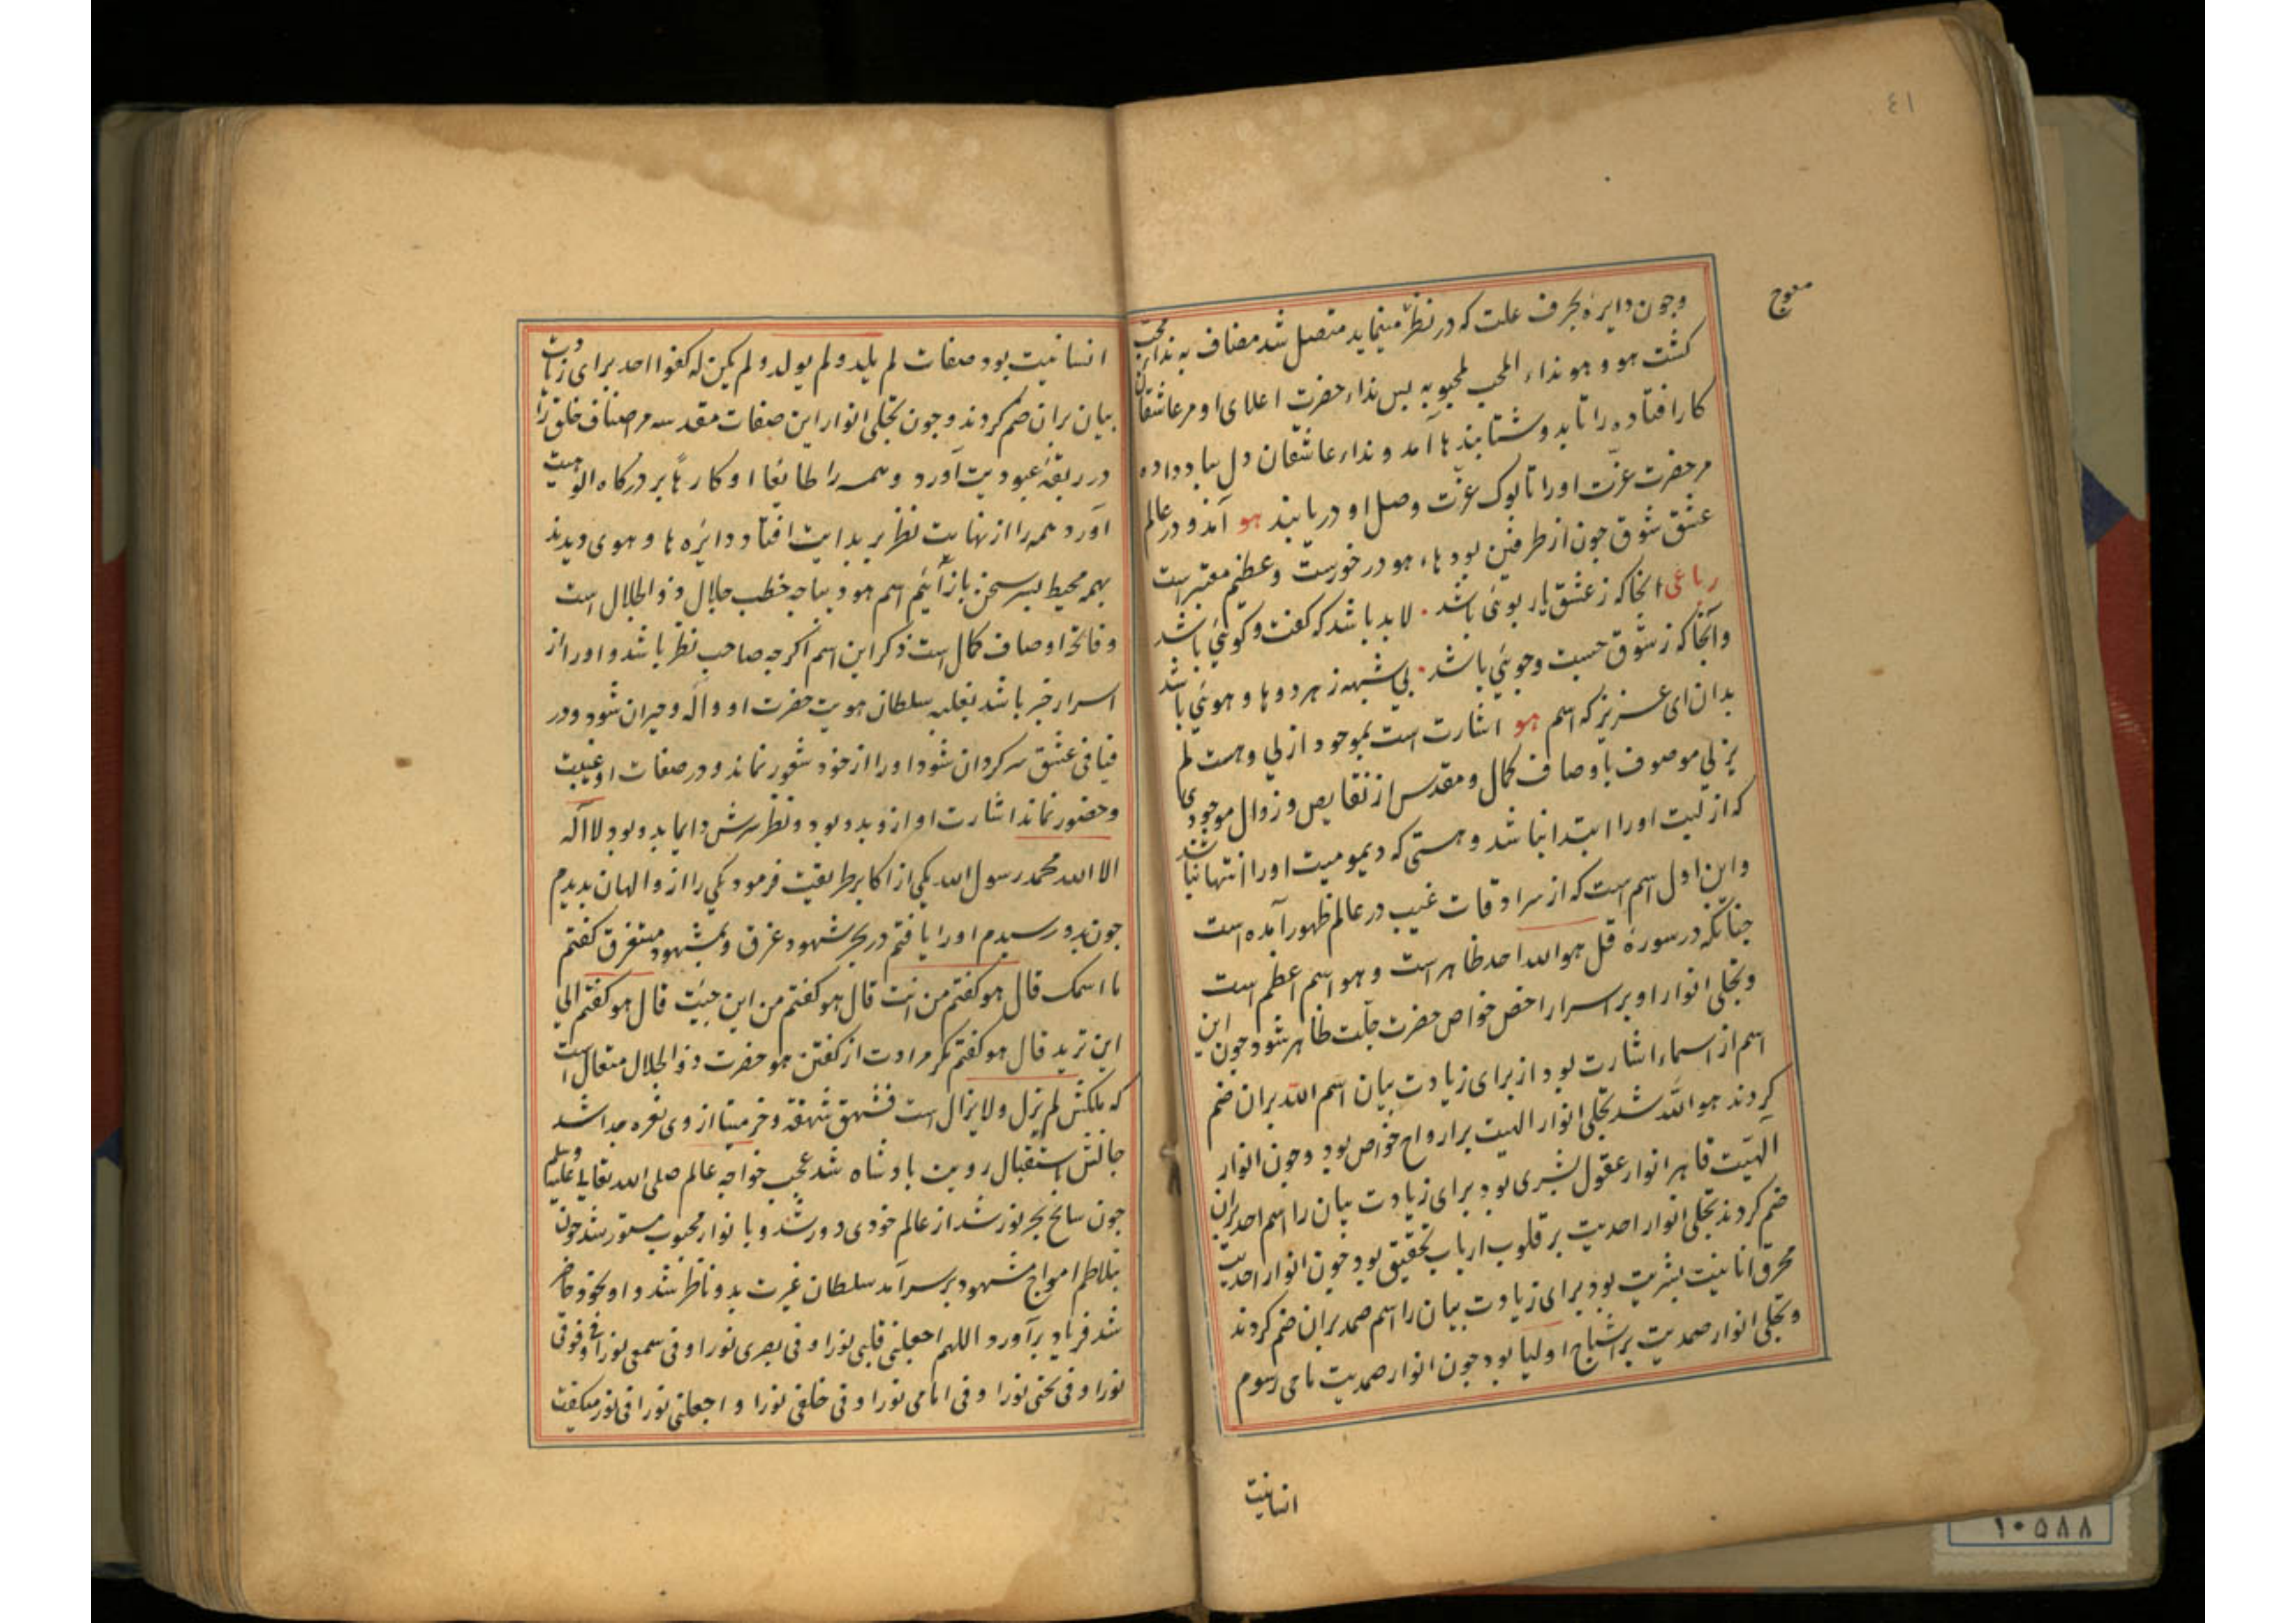 ٤١
معوج
وجون دایرۀ بحرف علت که در نظر مینماید متصل شد مضاف به نداء محب
کشت هو و هو نداء المحب لمحبوبه بس نداء حضرت اعلای او مر عاشقان
کار افتاده را تا بدو شتابند ها آمد و نداء عاشقان دل بباد داده
مر حضرت عزّت او را تا بوک عزّت وصل او دریابند هو آمد و در عالم
عشق شوق جون از طرفین بود ها، هو در خورست و عظیم معتبر است
رباعی آنجا که ز عشق یار بوئی باشد ٠ لابد باشد که کفت و کوئی باشد
وآنجا که ز شوق جست وجوئی باشد ٠ بی شبهه ز هر دو ها و هوئی باشد
بدان ای عزیز که اسم هو اشارت است بموجود ازلی وهست لم
یزلی موصوف باوصاف کمال و مقدس از نقایص و زوال موجودی
که ازلیت او را ابتدا نباشد و هستی که دیمومیت او را انتها نباشد
واین اول اسم است که از سرادقات غیب در عالم ظهور آمده است
جنانکه در سورۀ قل هو الله احد ظاهر است و هو اسم اعظم است
وتجلی انوار او بر اسرار اخص خواص حضرت جلّت ظاهر شود جون این
اسم از اسماء اشارت بود از برای زیادت بیان اسم الله بران ضم
کردند هو الله شد تجلی انوار الهیت بر ارواح خواص بود وجون انوار
الهیّت قاهر انوار عقول بشری بود برای زیادت بیان را اسم احد بران
ضم کردند تجلی انوار احدیت بر قلوب ارباب تحقیق بود جون انوار احدیت
محرق انانیت بشریت بود برای زیادت بیان را اسم صمد بران ضم کردند
وتجلی انوار صمدیت بر اشباح اولیا بود جون انوار صمدیت ماحی رسوم
انسانیت
انسانیت بود صفات لم یلد و لم یولد و لم یکن له کفوا احد برای زیادت
بیان بران ضم کردند وجون تجلی انوار این صفات مقدسه مر اصناف خلق را
در ربقۀ عبودیت آورد و همه را طائعا او کارهًا بر درکاه الوهیت
آورد همه را از نهایت نظر بر بدایت افتاد دائره ها و هوی دیدند
بهمه محیط بسر سخن باز آئیم اسم هو دیباجه خطب جلال ذو الجلال است
وفاتحۀ اوصاف کمال است ذکر این اسم اکرجه صاحب نظر باشد و او را از
اسرار خبر باشد بغلبه سلطان هویت حضرت او واله و حیران شود و در
فیافی عشق سرکردان شود او را از خود شعور نماند و در صفات او غیبت
وحضور نماند اشارت او ازو بدو بود و نظر سرش دایما بدو بود لا اله
الا الله محمد رسول الله یکی از اکابر طریقت فرمود یکی را از والهان بدیدم
جون بدو رسیدم او را یافتم در بحر شهود غرق و بمشهود مستغرق کفتم
ما اسمک قال هو کفتم من انت قال هو کفتم من این جیئت قال هو کفتم الی
این ترید قال هو کفتم مکر مرادت از کفتن هو حضرت ذو الجلال متعال است
که ملکش لم یزل و لا یزال است فشهق شهقة و خر میتا از وی نعره جدا شد
جانش باستقبال رویت بادشاه شد عجب خواجه عالم صلی الله تعالی علیه وسلم
جون سابح بحر نور شد از عالم خودی دور شد و با نوار محبوب مستور شد جون
بتلاطم امواج مشهود بر سر آمد سلطان غیرت بدو ناظر شد و او بخود حاضر
شد فریاد برآورد اللهم اجعلنی قلبی نورا و فی بصری نورا و فی سمعی نورا و فوقی
نورا و فی تحتی نورا و فی امامی نورا و فی خلفی نورا و اجعلنی نورا فی نور میکفت
١٠٥٨٨